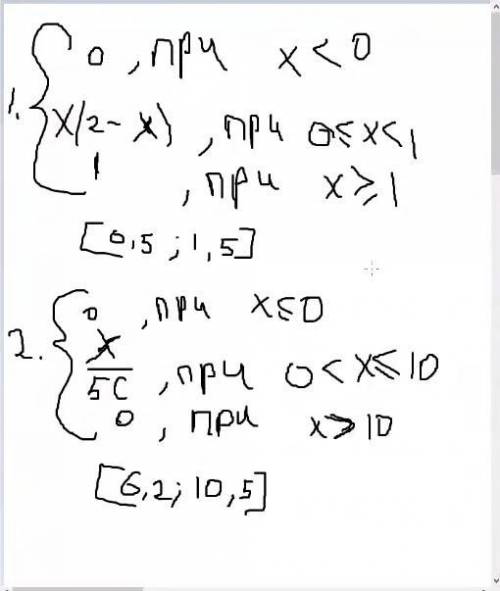 0, при x < 0
1. x(2 - x), при 0 ≤ x < 1
1, при x ≥ 1
[0,5 ; 1,5]
0, при x ≤ 0
2. x/5C, при 0 < x ≤ 10
0, при x > 10
[6,2; 10,5]